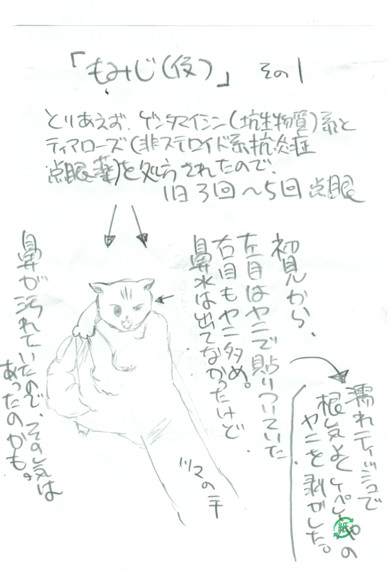 「もみじ(仮)」 その1
とりあえず、ゲンタマイシン(抗生物質)系と
ティアローズ(非ステロイド系抗炎症
点眼薬)を処方されたので、
1日3回〜5回点眼
初見から、
左目はヤニで貼りついていた
右目もヤニ多め。
鼻水は出てなかったけど
鼻が汚れていたので、その気は
あったのかも。
濡れティッシュで
根気よく
ヤニを剥がした。
ツマの手
紙